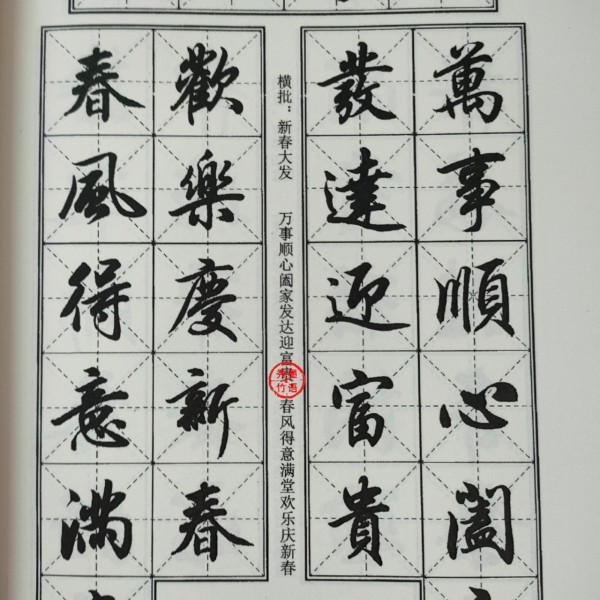 萬事順心闔
發達迎富貴
横批：新春大发 万事顺心阖家发达迎富 春风得意满堂欢乐庆新春
歡樂慶新春
春風得意滿